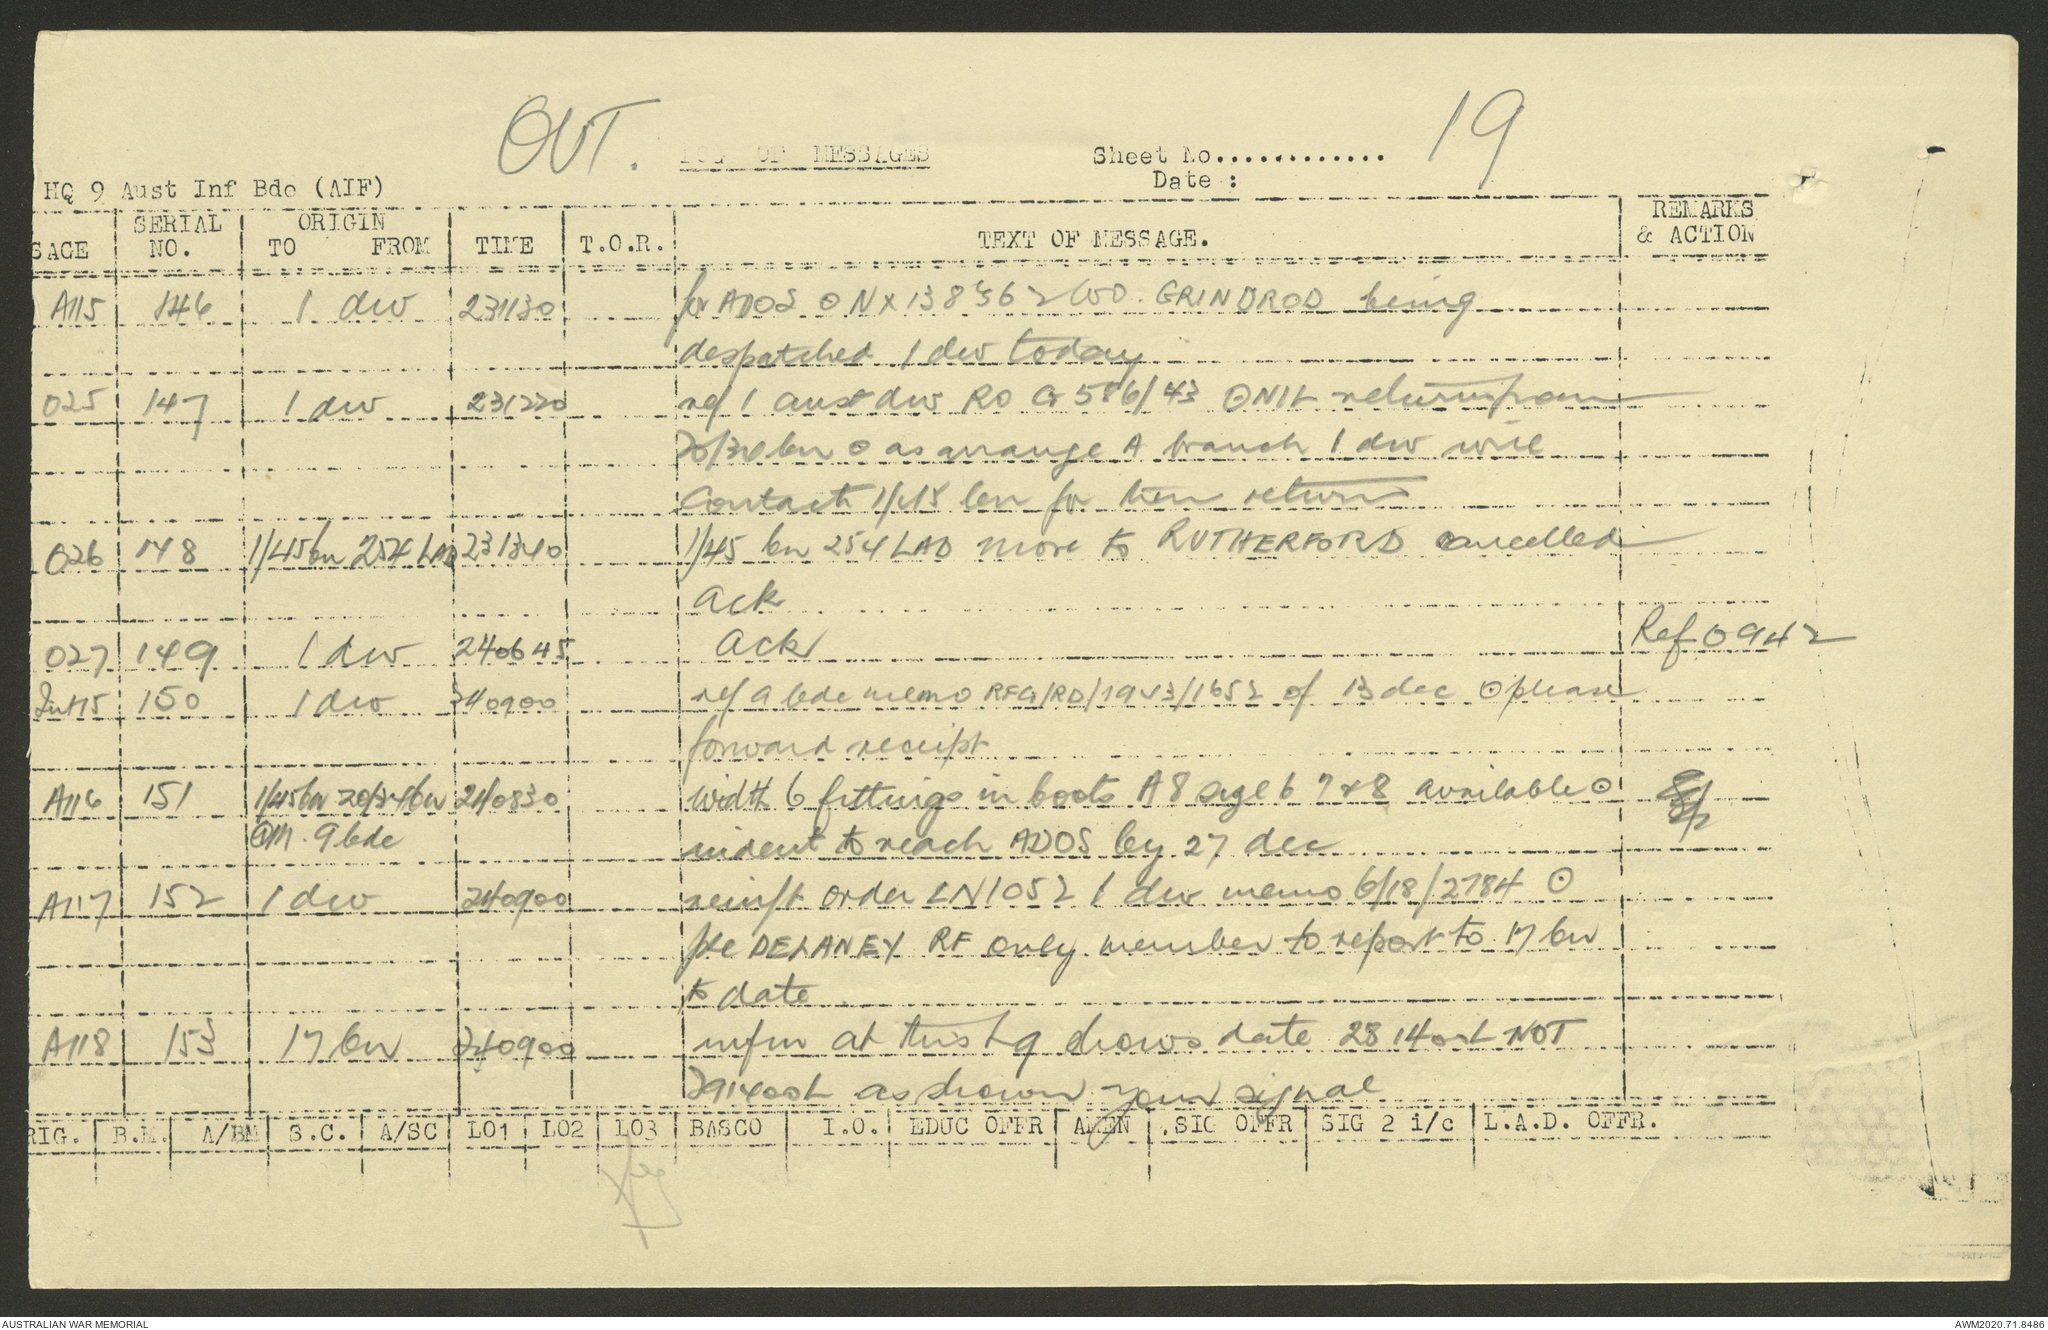 OUT. LOG OF MESSAGES Sheet No............. 19
Date :
HQ 9 Aust Inf Bde (AIF)
SAGE SERIAL NO. ORIGIN TO FROM TIME T.O.R. TEXT OF MESSAGE. REMARKS & ACTION
A115 146 1 div 231130 for ADOS ⊙ NX138562 GRINDROD being
despatched 1 div today
025 147 1 div 231220 ref 1 aust div RO G 586/43 ⊙ NIL return from
bn ⊙ as arrange A branch 1 div will
Contact 1/45 bn for return
026 148 1/45 bn 254 LAD 231340 1/45 bn 254 LAD move to RUTHERFORD cancelled
ack
027 149 1 div 240645 ack Ref 0942
150 1 div 240900 ref 9 bde memo of 13 dec ⊙ please
forward receipt
A116 151 1/45 bn 20/34 bn 240830 width 6 fittings in boots A8 size 6 7 & 8 available ⊙
9 bde indent to reach ADOS by 27 dec
A117 152 1 div 240900 reinft order LN1052 1 div memo 6/18/2784 ⊙
pte DELANEY RF only member to report to 17 bn
to date
A118 153 17 bn 240900 infm at this hq shows date 28 NOT
291400L as shown your signal
RIG. B.M. A/BM S.C. A/SC LO1 LO2 LO3 BASCO I.O. EDUC OFFR AMEN SIG OFFR SIG 2 i/c L.A.D. OFFR.
AUSTRALIAN WAR MEMORIAL AWM2020.71.8486